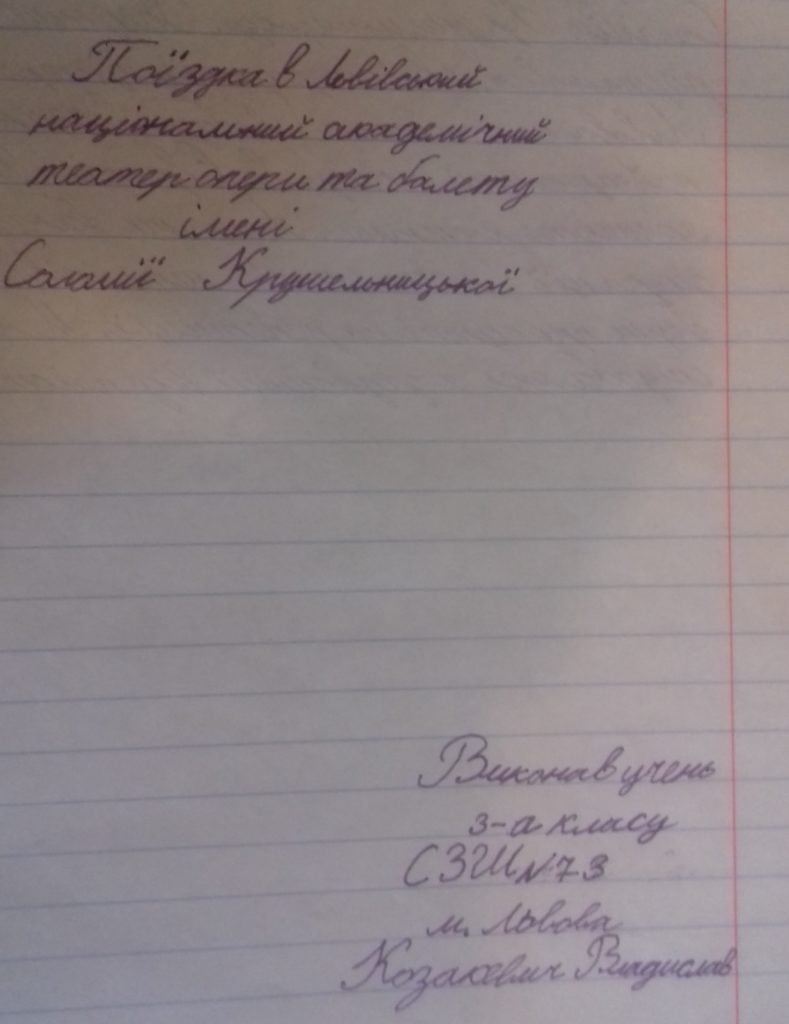 Поїздка в Львівський
національний академічний
театер опери та балету
імені
Соломії Крушельницької
Виконав учень
3-а класу
СЗШ №73
м. Львова
Козакевич Владислав